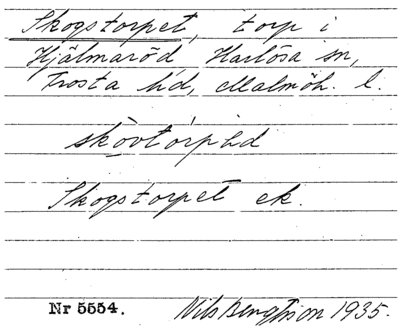 Skogstorpet, torp i
Hjälmaröd Harlösa sn,
Frosta hd, Malmöh. l.
skòvtòrpəd
Skogstorpet ek.
Nr 5554. Nils Bengtsson 1935.